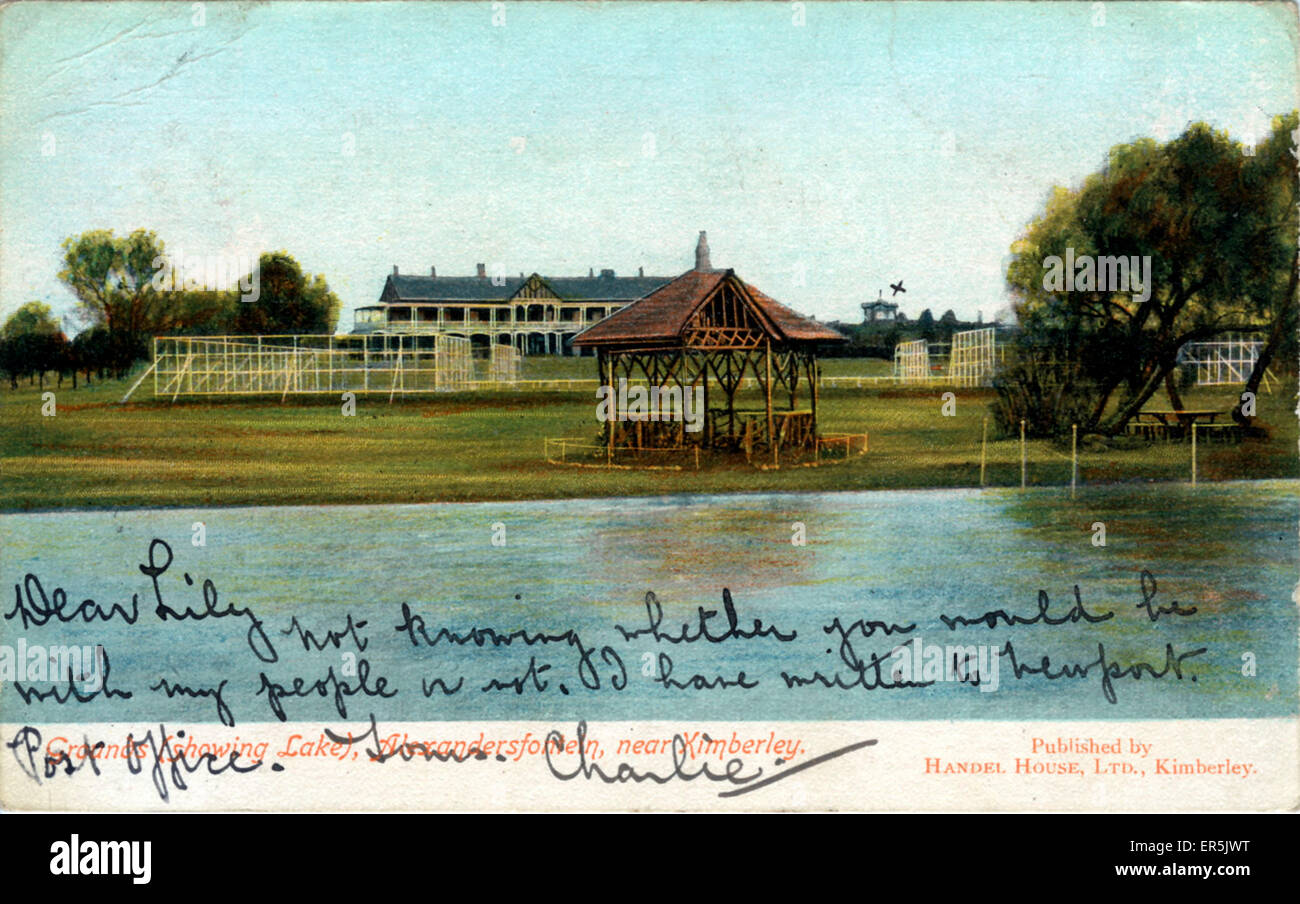 Dear Lily not knowing whether you would be
with my people or not. I have written to Newport.
Post Office. Yours. Charlie
Grounds (showing Lake), Alexandersfontein, near Kimberley.
Published by
HANDEL HOUSE, LTD., Kimberley.
a alamy stock photo
ER5JWT
www.alamy.com